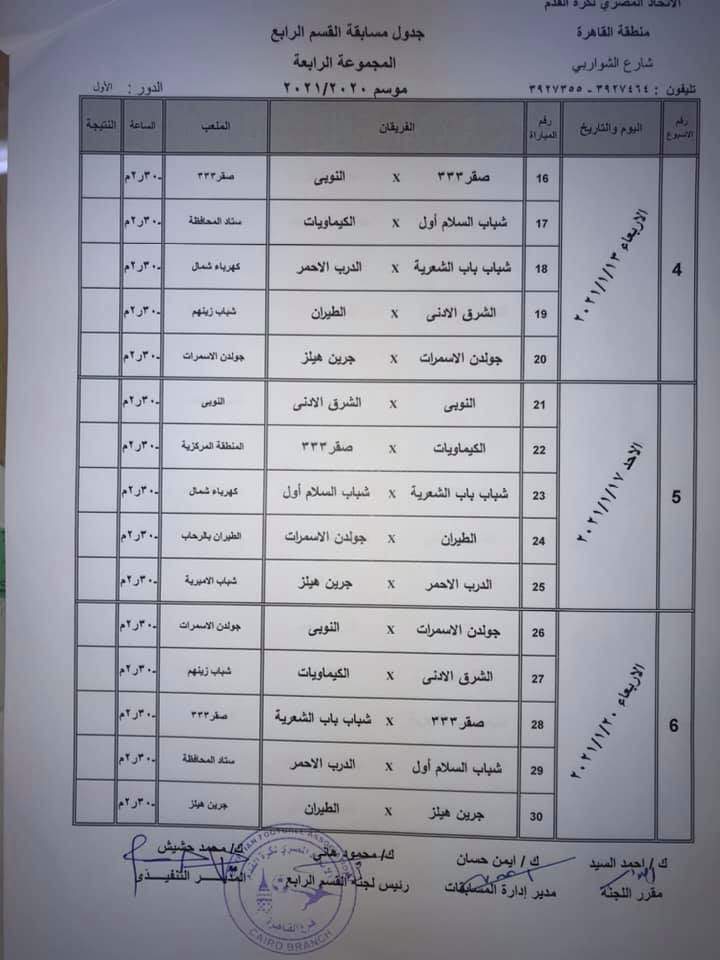 الاتحاد المصري لكرة القدم
منطقة القاهرة
شارع الشواربي
تليفون : ٣٩٢٧٤٦٤ - ٣٩٢٧٣٥٥
جدول مسابقة القسم الرابع
المجموعة الرابعة
موسم ٢٠٢١/٢٠٢٠
الدور : الأول
رقم الاسبوع اليوم والتاريخ رقم المباراة الفريقان الملعب الساعة النتيجة
4 الاربعاء ٢٠٢١/١/١٣
16 صقر٣٣٣ x النوبى صقر٣٣٣ ٢٫٣٠م
17 شباب السلام أول x الكيماويات ستاد المحافظة ٢٫٣٠م
18 شباب باب الشعرية x الدرب الاحمر كهرباء شمال ٢٫٣٠م
19 الشرق الادنى x الطيران شباب زينهم ٢٫٣٠م
20 جولدن الاسمرات x جرين هيلز جولدن الاسمرات ٢٫٣٠م
5 الاحد ٢٠٢١/١/١٧
21 النوبى x الشرق الادنى النوبى ٢٫٣٠م
22 الكيماويات x صقر٣٣٣ المنطقة المركزية ٢٫٣٠م
23 شباب باب الشعرية x شباب السلام أول كهرباء شمال ٢٫٣٠م
24 الطيران x جولدن الاسمرات الطيران بالرحاب ٢٫٣٠م
25 الدرب الاحمر x جرين هيلز شباب الاميرية ٢٫٣٠م
6 الاربعاء ٢٠٢١/١/٢٠
26 جولدن الاسمرات x النوبى جولدن الاسمرات ٢٫٣٠م
27 الشرق الادنى x الكيماويات شباب زينهم ٢٫٣٠م
28 صقر٣٣٣ x شباب باب الشعرية صقر٣٣٣ ٢٫٣٠م
29 شباب السلام أول x الدرب الاحمر ستاد المحافظة ٢٫٣٠م
30 جرين هيلز x الطيران جرين هيلز ٢٫٣٠م
ك / احمد السيد ك / ايمن حسان ك/ محمود هانى ك/ محمد حشيش
مقرر اللجنة مدير إدارة المسابقات رئيس لجنة القسم الرابع المدير التنفيذى
فرع القاهرة
CAIRO BRANCH